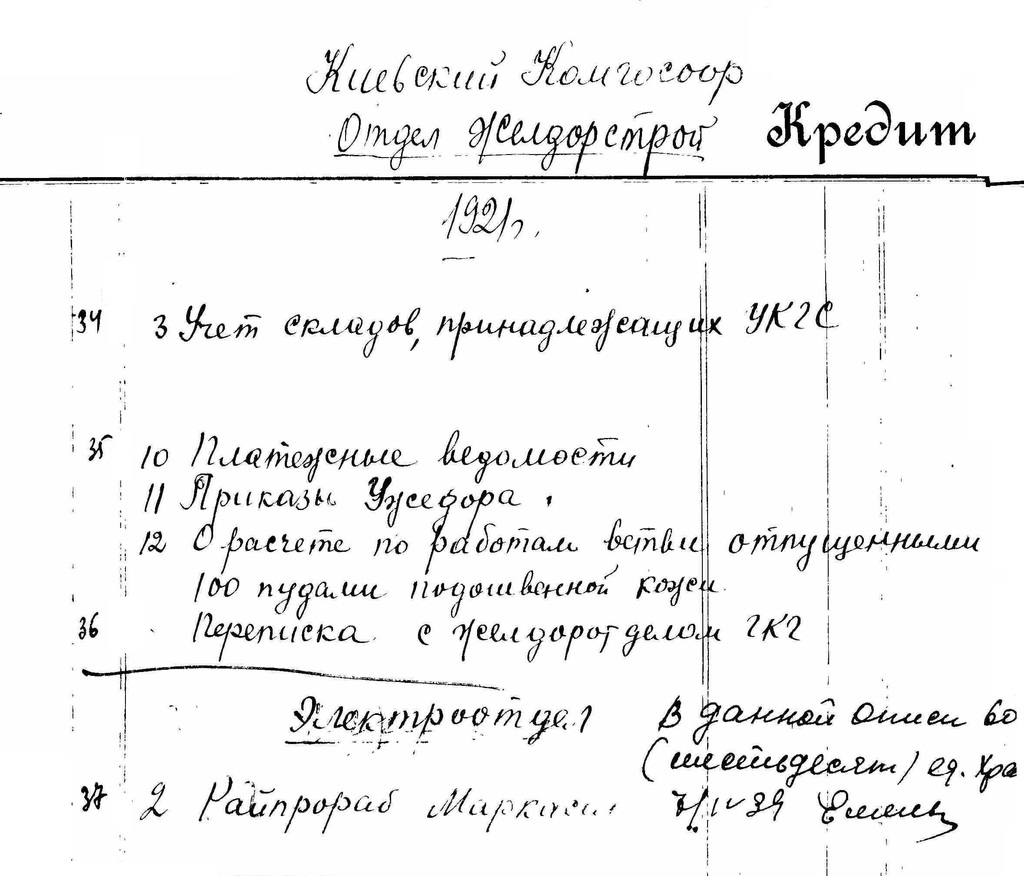 Киевский Комгосоор
Отдел Желдорстрой Кредит
1921г.
34 3 Учет складов, принадлежащих УКГС
35 10 Платежные ведомости
11 Приказы Ужедора
12 О расчете по работам отпущенными
100 пудами подошвенной кожи
36 Переписка с желдоротделом ГКГ
Электроотдел
В данной описи 60
(шестьдесят) ед. хра
37 2 Райпрораб